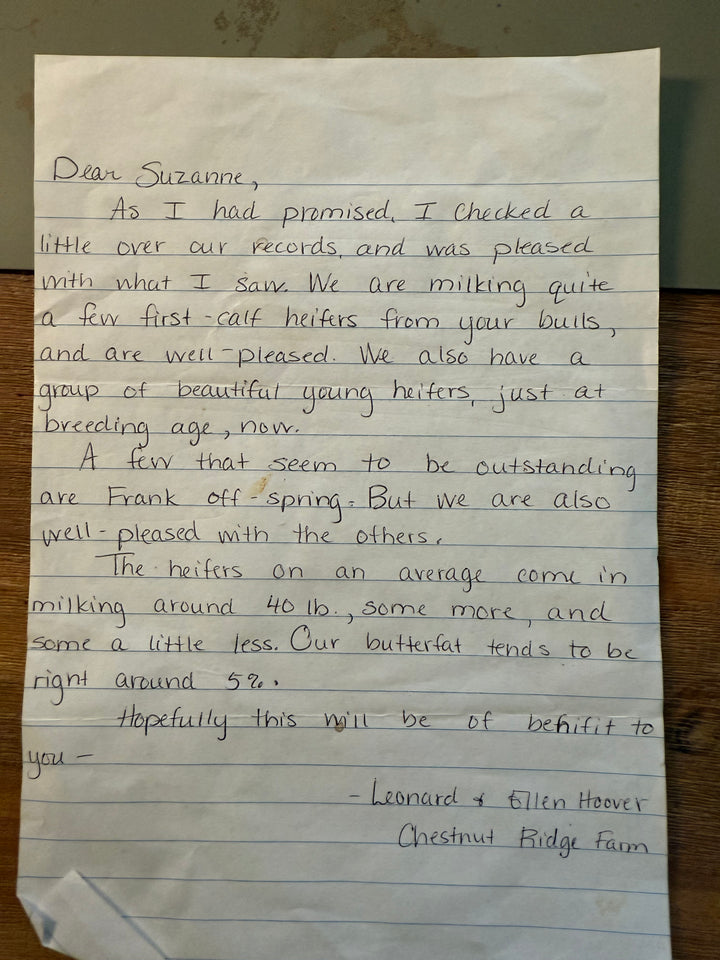 Dear Suzanne,
As I had promised, I checked a
little over our records, and was pleased
with what I saw. We are milking quite
a few first-calf heifers from your bulls,
and are well-pleased. We also have a
group of beautiful young heifers, just at
breeding age, now.
A few that seem to be outstanding
are Frank off-spring. But we are also
well-pleased with the others.
The heifers on an average come in
milking around 40 lb., some more, and
some a little less. Our butterfat tends to be
right around 5%.
Hopefully this will be of behifit to
you —
- Leonard & Ellen Hoover
Chestnut Ridge Farm